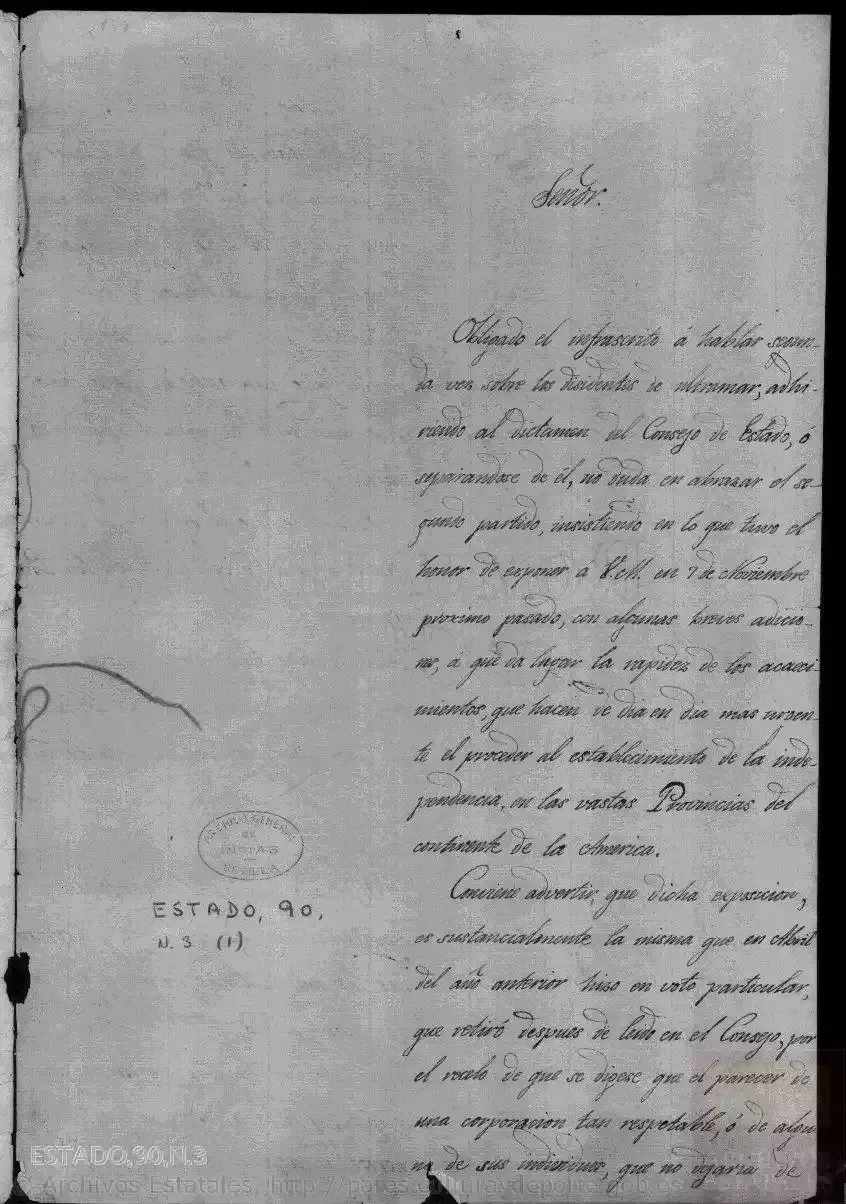 Señor.
Obligado el infrascrito á hablar segun-
da vez sobre los disidentes de ultramar, adhi-
riendo al dictamen del Consejo de Estado, ó
separandose de él, no duda en abrazar el se-
gundo partido, insistiendo en lo que tuvo el
honor de exponer a V.M. en 7 de Noviembre
proximo pasado, con algunas breves adicio-
nes, á que da lugar la rapidez de los acaeci-
mientos, que hacen de dia en dia mas urgen-
te el proceder al establecimiento de la inde-
pendencia, en las vastas Provincias del
continente de la America.
Conviene advertir, que dicha exposicion,
es sustancialmente la misma que en Abril
del año anterior hizo en voto particular,
que retiró despues de leido en el Consejo, por
el recelo de que se digese que el parecer de
una corporacion tan respetable, ó de algu-
no de sus individuos, que no dejaria de
ARCHIVO GENERAL
DE
INDIAS
SEVILLA
ESTADO, 90,
N. 3 (1)
ESTADO,90,N.3
© Archivos Estatales, http://pares.culturaydeporte.gob.es